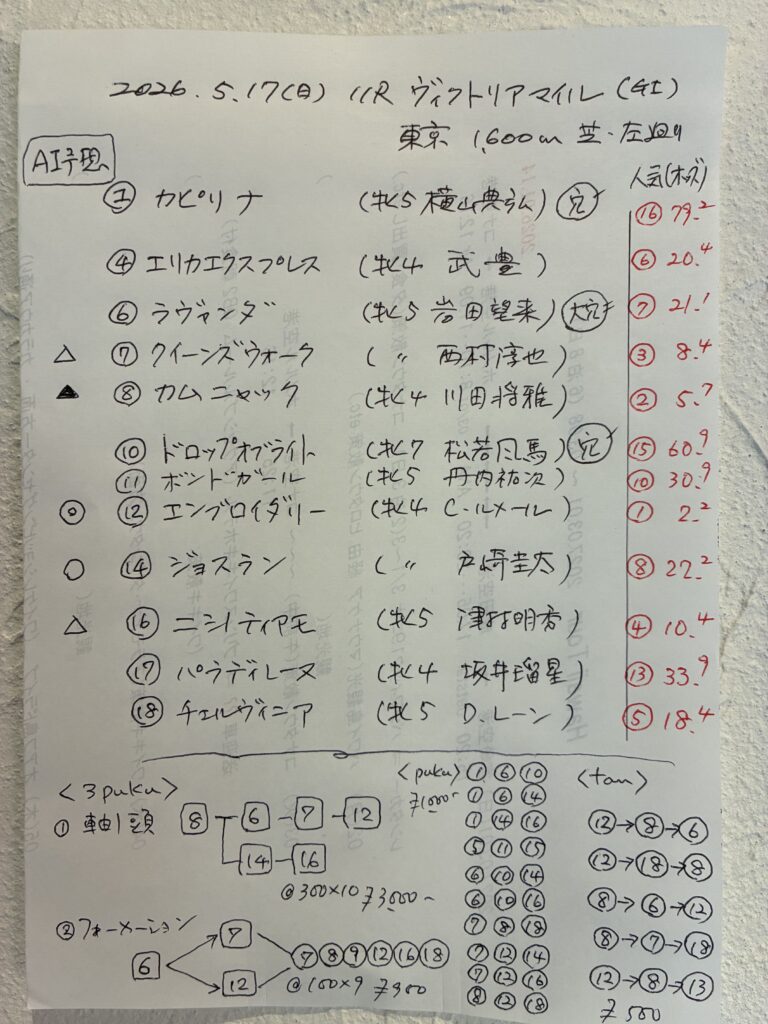 2026.5.17(日) 11R ヴィクトリアマイル(GI)
東京 1,600m 芝・左廻り
AI予想 人気(オッズ)
① カピリナ (牝5 横山典弘) 穴 ⑯ 79.2
④ エリカエクスプレス (牝4 武豊) ⑥ 20.4
⑥ ラヴァンダ (牝5 岩田望来) 大穴 ⑦ 21.1
△ ⑦ クイーンズウォーク (〃 西村淳也) ③ 8.4
▲ ⑧ カムニャック (牝4 川田将雅) ② 5.7
⑩ ドロップオブライト (牝7 松若風馬) 穴 ⑮ 60.9
⑪ ボンドガール (牝5 丹内祐次) ⑩ 30.9
◎ ⑫ エンブロイダリー (牝4 C.ルメール) ① 2.2
○ ⑭ ジョスラン (〃 戸崎圭太) ⑧ 22.2
△ ⑯ ニシノティアモ (牝5 津村明秀) ④ 10.4
⑰ パラディレーヌ (牝4 坂井瑠星) ⑬ 33.9
⑱ チェルヴィニア (牝5 D.レーン) ⑤ 18.4
<3puku>
① 軸1頭 8 6 - 7 - 12
14 - 16
@300×10 ¥3000-
② フォーメーション
6 7 12 ⑦⑧⑨⑫⑯⑱
@100×9 ¥900
<puku> ¥1000-
① ⑥ ⑩
① ⑥ ⑭
① ⑭ ⑯
⑤ ⑪ ⑮
⑥ ⑩ ⑭
⑥ ⑩ ⑯
⑦ ⑧ ⑱
⑦ ⑫ ⑭
⑦ ⑫ ⑯
⑧ ⑫ ⑱
<tan>
⑫→⑧→⑥
⑫→⑱→⑧
⑧→⑥→⑫
⑧→⑦→⑱
⑫→⑧→⑬
¥500